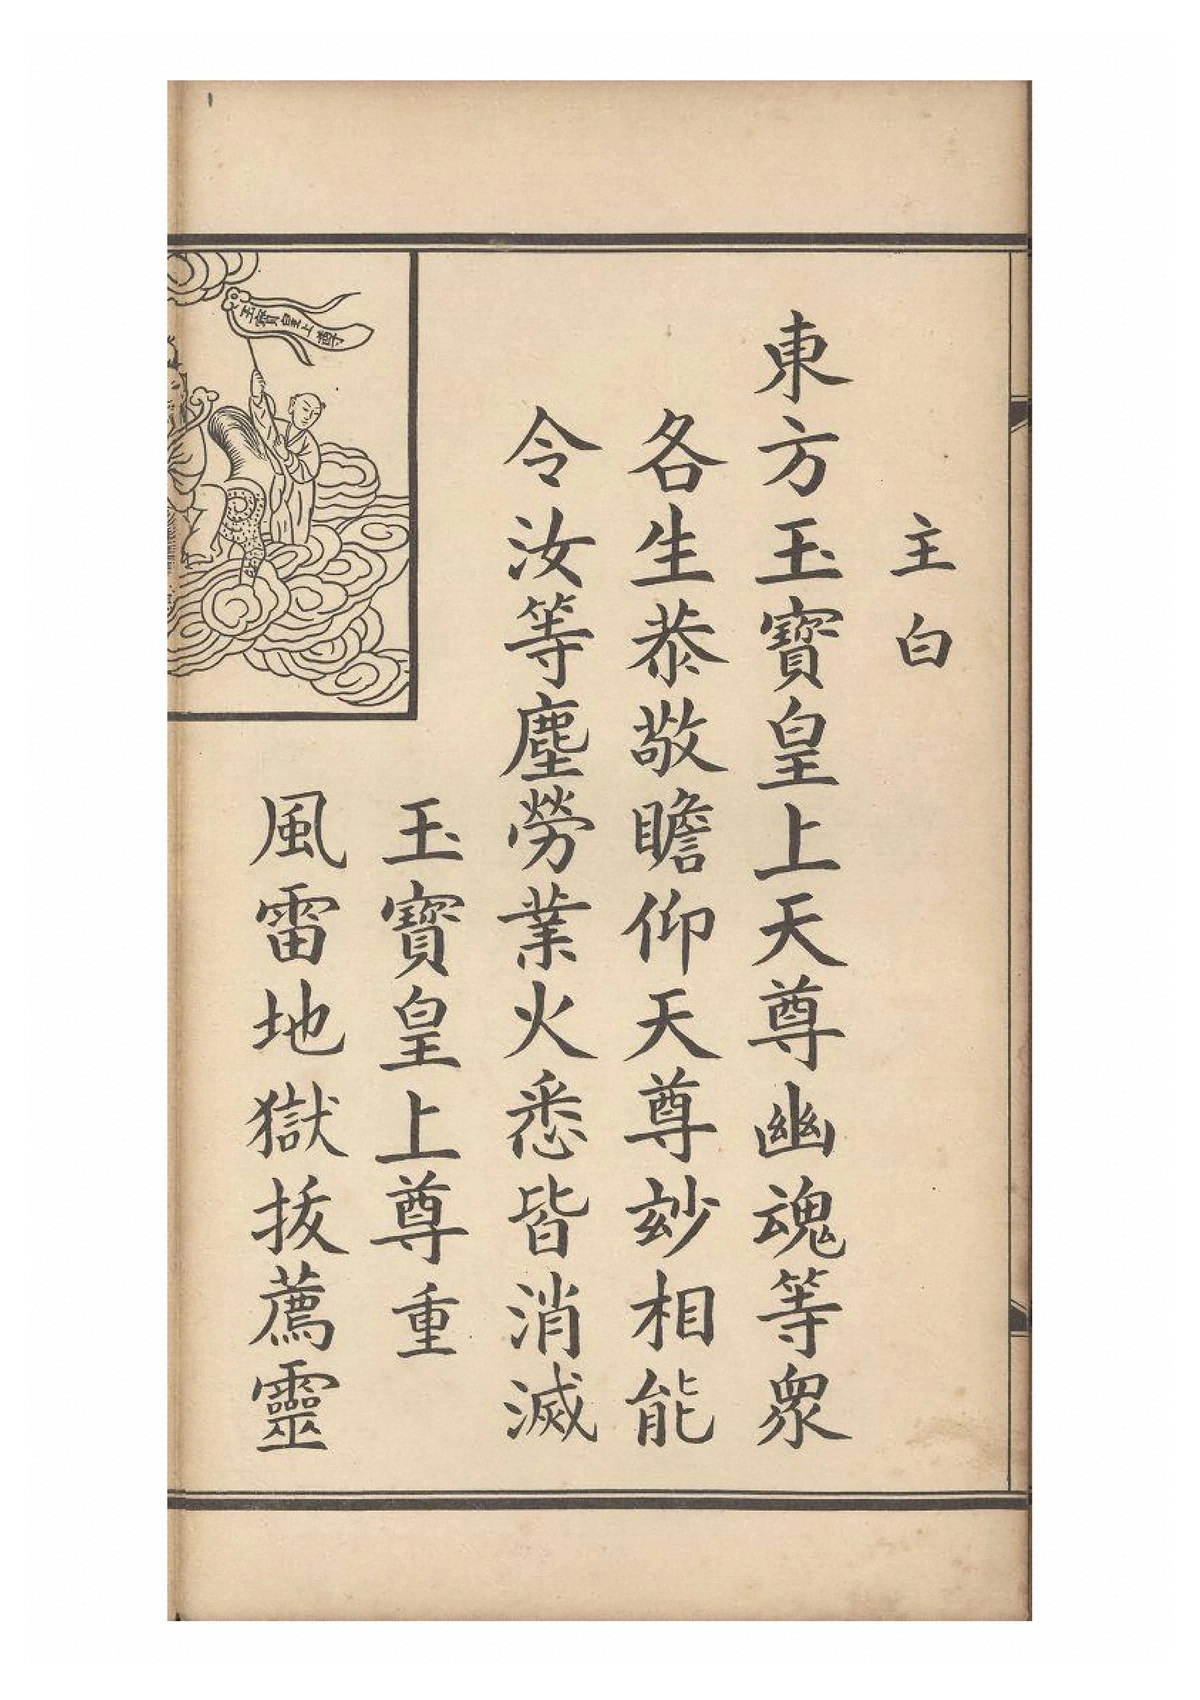 主白
東方玉寶皇上天尊幽魂等衆
各生恭敬瞻仰天尊玅相能
令汝等塵勞業火悉皆消滅
玉寶皇上尊重
玉寶皇上尊
風雷地獄拔薦靈